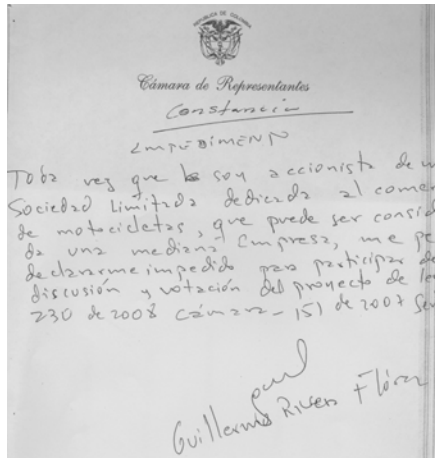 REPUBLICA DE COLOMBIA
Cámara de Representantes
Constancia
IMPEDIMENTO
Toda vez que soy accionista de un
Sociedad Limitada dedicada al comer
de motocicletas, que puede ser consid
da una mediana Empresa, me pe
declararme impedido para participar de
discusión y votación del proyecto de ley
230 de 2008 Cámara - 151 de 2007 Sen
Guillermo Rivera Flórez